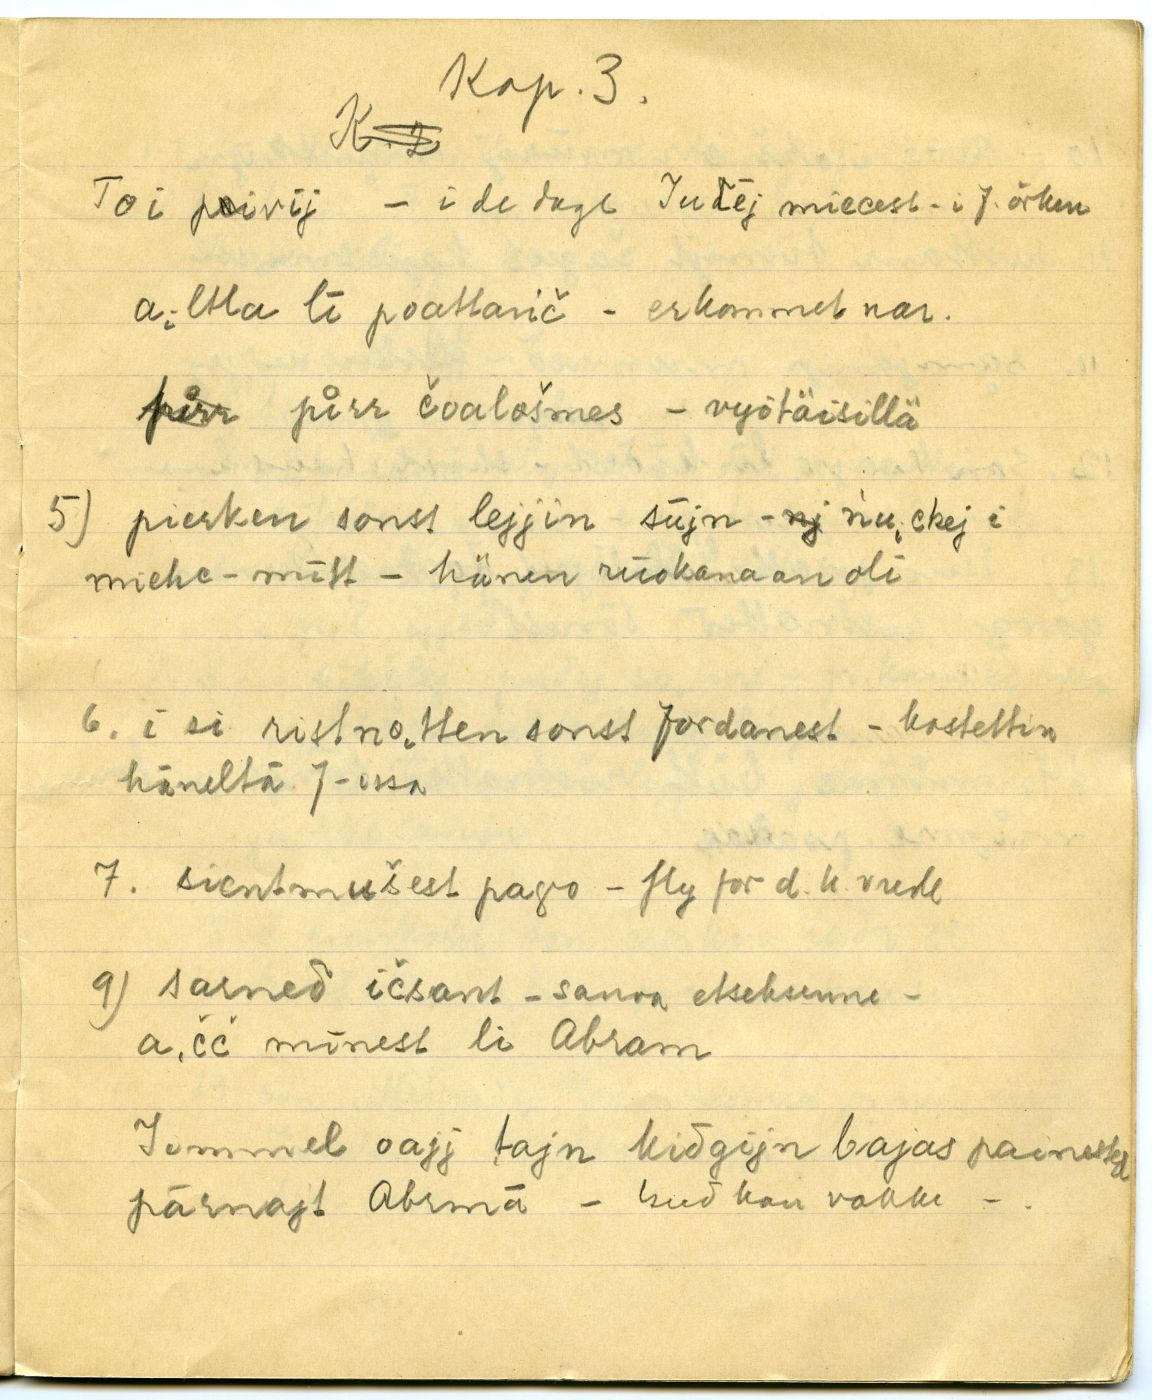 Kap. 3.
K. 2
Toi poivij – i de dage Juđēj miecest – i J. örken
a͔ltla lī poattarič – er kommet nær.
pi̊rr pi̊rr čoalošmes – vyötäisillä
5) pierken sonst lejjin sūjn – nj ńu͔ckej i
miehc – mītt – hänen ruokanaan oli
6. i si ristno͔tten sonst Jordanest – kastettin
häneltä J-ossa
7. sientmušest pago – fly for d. k. vrede
9) sarneđ ičsant – sanoa itseksenne –
a͔čč mīnest li Abram
Jummel oajj tajn kiđgijn bajas painested
pārnajt Abrmā – Gud kan vække –.